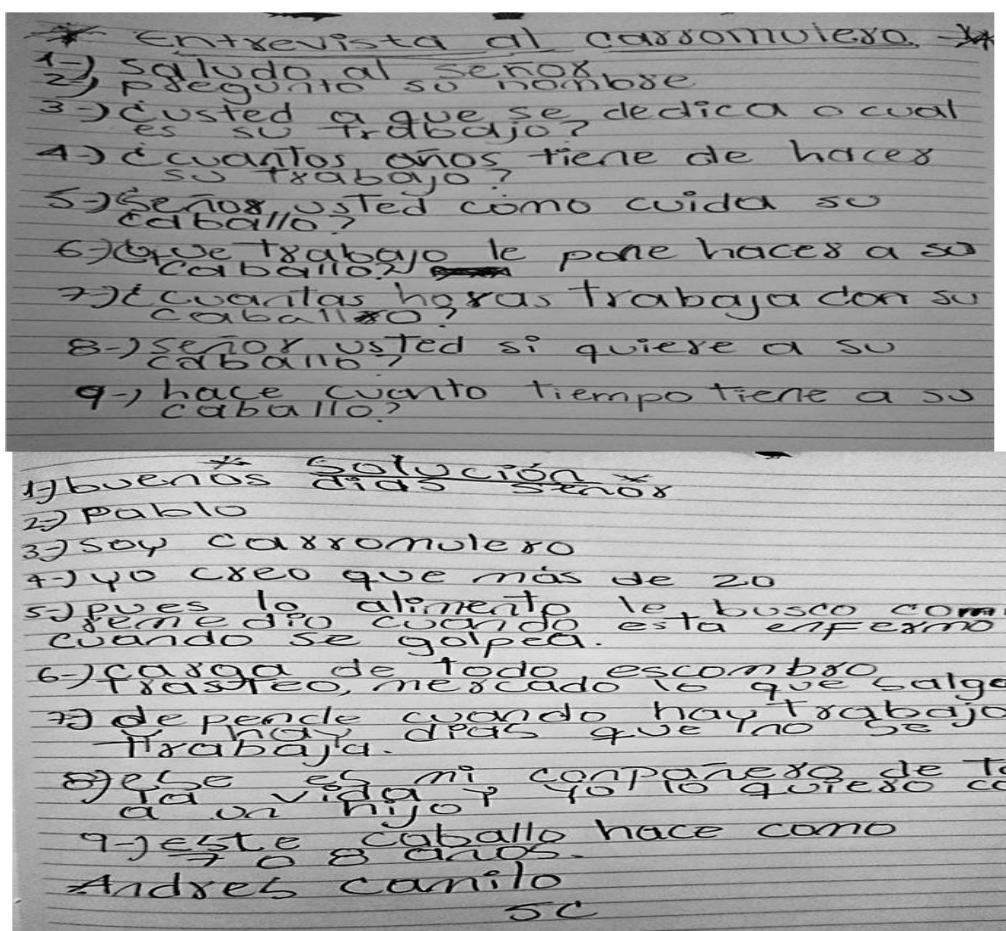 * Entrevista al carromulero *
1-) saludo al señor
2-) pregunto su nombre
3-) ¿usted a que se dedica o cual
es su trabajo?
4-) ¿cuantos años tiene de hacer
su trabajo?
5-) Señor usted como cuida su
caballo?
6-) Que trabajo le pone hacer a su
caballo?
7-) ¿cuantas horas trabaja con su
caballo?
8-) señor usted si quiere a su
caballo?
9-) hace cuanto tiempo tiene a su
caballo?
* Solución *
1-) buenos dias señor
2-) Pablo
3-) soy carromulero
4-) yo creo que más de 20
5-) pues lo alimento le busco com
remedio cuando esta enfermo
cuando se golpea.
6-) carga de todo escombro
trasteo, mercado lo que salga
7-) depende cuando hay trabajo
y hay dias que no se
trabaja.
8-) ese es mi conpañero de to
la vida y yo lo quiero co
a un hijo
9-) este caballo hace como
7 o 8 años.
Andres camilo
5C